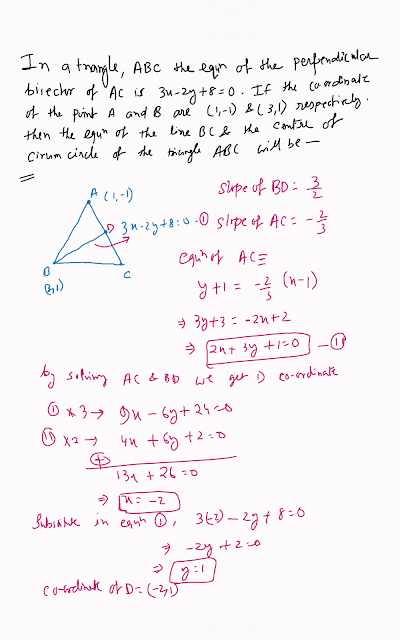 In a triangle, ABC the eqn of the perpendicular
bisector of AC is 3x-2y+8=0. If the co-ordinate
of the point A and B are (1,-1) & (3,1) respectively.
then the eqn of the line BC & the centre of
circumcircle of the triangle ABC will be —
A (1,-1)
D 3x-2y+8=0 -①
B
(3,1)
C
slope of BD = 3/2
slope of AC = -2/3
eqn of AC ≡
y+1 = -2/3 (x-1)
⇒ 3y+3 = -2x+2
⇒ 2x+3y+1=0 —⑪
by solving AC & BD we get D co-ordinate
① × 3 → 9x - 6y + 24=0
⑪ × 2 → 4x + 6y + 2=0
(+)
13x + 26=0
⇒ x = -2
Substitute in eqn ①, 3(-2) - 2y + 8=0
⇒ -2y + 2=0
⇒ y=1
co-ordinate of D = (-2,1)